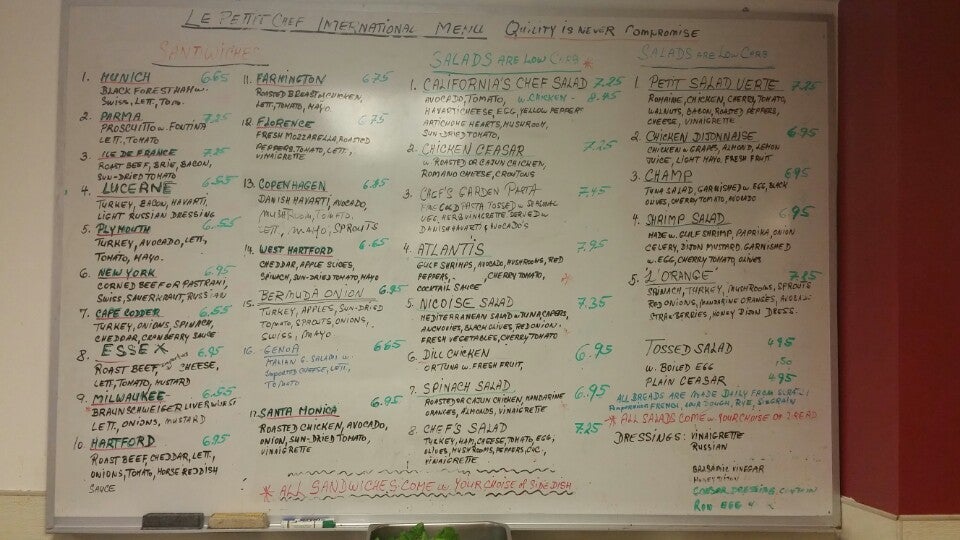 LE PETTIT CHEF INTERNATIONAL MENU QUILITY IS NEVER COMPROMISE
SANTWICHES
1. MUNICH 6.65
BLACK FOREST HAM w.
SWISS, LETT, TOM.
2. PARMA 7.25
PROSCUITTO w. FOUTINA
LETT, TOMATO
3. ILE DE FRANCE 7.25
ROAST BEEF, BRIE, BACON,
SUN-DRIED TOMATO
4. LUCERNE 6.55
TURKEY, BACON, HAVARTI,
LIGHT RUSSIAN DRESSING
5. PLYMOUTH 6.55
TURKEY, AVOCADO, LETT,
TOMATO, MAYO.
6. NEW YORK 6.95
CORNED BEEF OR PASTRAMI,
SWISS, SAUERKRAUT, RUSSIAN
7. CAPE CODDER 6.55
TURKEY, ONIONS, SPINACH,
CHEDDAR, CRANBERRY SAUCE
8. ESSEX 6.95
ROAST BEEF, CHEESE,
LETT, TOMATO, MUSTARD
9. MILWAUKEE 6.55
BRAUNSCHWEIGER LIVERWURST
LETT, ONIONS, MUSTARD
10. HARTFORD 6.95
ROAST BEEF, CHEDDAR, LETT,
ONIONS, TOMATO, HORSE REDDISH
SAUCE
11. FARMINGTON 6.75
ROASTED BREAST w CHICKEN,
LETT, TOMATO, MAYO.
12. FLORENCE 6.75
FRESH MOZZARELLA, ROASTED
PEPPERS, TOMATO, LETT,
VINAIGRETTE
13. COPENHAGEN 6.85
DANISH HAVARTI, AVOCADO,
MUSHROOM, TOMATO,
LETT, MAYO, SPROUTS
14. WEST HARTFORD 6.65
CHEDDAR, APPLE SLICES,
SPINACH, SUN-DRIED TOMATO, MAYO
15. BERMUDA ONION 6.95
TURKEY, APPLES, SUN-DRIED
TOMATO, SPROUTS, ONIONS,
SWISS, MAYO
16. GENOA 6.65
ITALIAN G. SALAMI w.
IMPORTED CHEESE, LETT,
TOMATO
17. SANTA MONICA 6.95
ROASTED CHICKEN, AVOCADO,
ONION, SUN-DRIED TOMATO,
VINAIGRETTE
* ALL SANDWICHES COME w. YOUR CHOISE of SIDE DISH
SALADS ARE LOW CARB *
1. CALIFORNIA'S CHEF SALAD 7.25
AVOCADO, TOMATO, w. CHICKEN - 8.45
HAVARTI CHEESE, EGG, YELLOW PEPPER
ARTICHOKE HEARTS, MUSHROOM,
SUN-DRIED TOMATO,
2. CHICKEN CEASAR 7.25
w. ROASTED OR CAJUN CHICKEN,
ROMANO CHEESE, CROUTONS
3. CHEF'S GARDEN PASTA 7.45
PASTA TOSSED w.
VEG, HERB VINIGRETTE. SERVED w
DANISH HAVARTI & AVOCADO'S
4. ATLANTIS 7.95
GULF SHRIMPS, AVOCADO, MUSHROOMS, RED
PEPPERS, - CHERRY TOMATO,
COCKTAIL SAUCE
5. NICOISE SALAD 7.35
MEDITERRANEAN SALAD w TUNA, CAPERS,
ANCVOIES, BLACK OLIVES, RED ONION.
FRESH VEGETABLES, CHERRY TOMATO
6. DILL CHICKEN 6.95
OR TUNA w. FRESH FRUIT,
7. SPINACH SALAD 6.95
ROASTED OR CAJUN CHICKEN, MANDARINE
ORANGES, ALMONDS, VINAIGRETTE
8. CHEF'S SALAD 7.25
TURKEY, HAM, CHEESE, TOMATO, EGG,
OLIVES, MUSHROOMS, PEPPERS, CUC.,
VINAIGRETTE
SALADS ARE LOW CARB
1. PETIT SALAD VERTE 7.25
ROMAINE, CHICKEN, CHERRY, TOMATO,
WALNUTS, BACON, ROASTED PEPPERS,
CHEESE, VINAIGRETTE
2. CHICKEN DIJONNAISE 6.95
CHICKEN w GRAPES, ALMOND, LEMON
JUICE, LIGHT MAYO, FRESH FRUIT
3. CHAMP 6.95
TUNA SALAD, GARNISHED w EGG, BLACK
OLIVES, CHERRY TOMATO, AVOCADO
4. SHRIMP SALAD 6.95
MADE w. GULF SHRIMP, PAPRIKA, ONION
CELERY, DIJON MUSTARD. GARNISHED
w. EGG, CHERRY TOMATO, OLIVES
5. L'ORANGE' 7.25
SPINACH, TURKEY, MUSHROOMS, SPROUTS
RED ONIONS, MANDARINE ORANGES, AVOCADO
STRAWBERRIES, HONEY DIJON DRESS.
TOSSED SALAD 4.95
w. BOILED EGG .50
PLAIN CEASAR 4.95
ALL BREADS ARE MADE DAILY FROM SCRATCH!
FRENCH, SOUR DOUGH, RYE, SIX GRAIN
* ALL SALADS COME w YOUR CHOISE of BREAD
DRESSINGS: VINAIGRETTE
RUSSIAN
BALSAMIC VINEGAR
HONEY DIJON
CAESAR DRESSING CONTAIN
RAW EGG